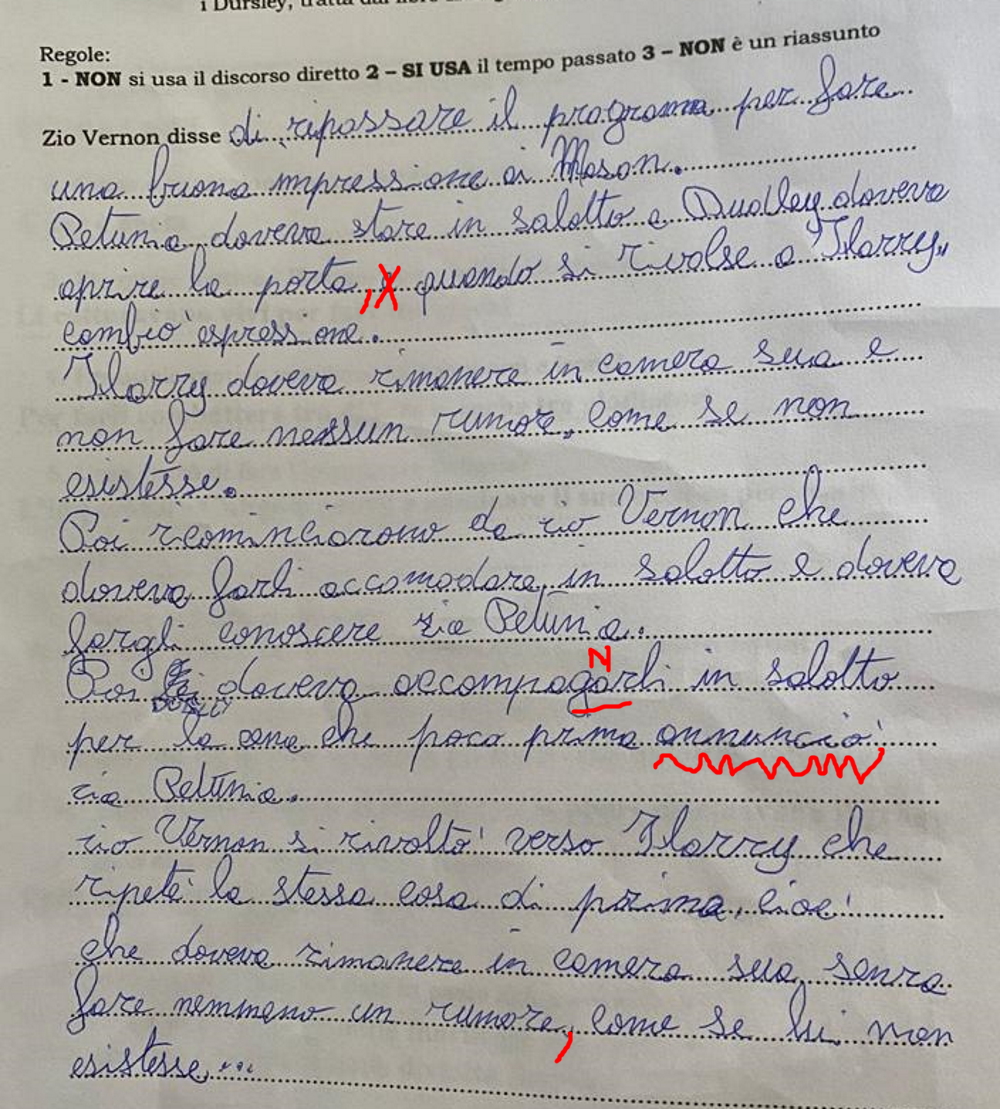 i Dursley, tratta dal
Regole:
1 - NON si usa il discorso diretto 2 – SI USA il tempo passato 3 – NON è un riassunto
Zio Vernon disse di ripassare il programma per fare
una buona impressione ai Mason.
Petunia doveva stare in salotto e Dudley doveva
aprire la porta, e quando si rivolse a Harry,
cambiò espressione.
Harry doveva rimanere in camera sua e
non fare nessun rumore, come se non
esistesse.
Poi ricominciarono da zio Vernon che
doveva farli accomodare in salotto e doveva
fargli conoscere zia Petunia.
Poi doveva accompagarli in salotto
N
per la cena che poco prima annunciò
zia Petunia.
zio Vernon si rivoltò verso Harry che
ripetè la stessa cosa di prima, cioè
che doveva rimanere in camera sua, senza
fare nemmeno un rumore, come se lui non
esistesse...